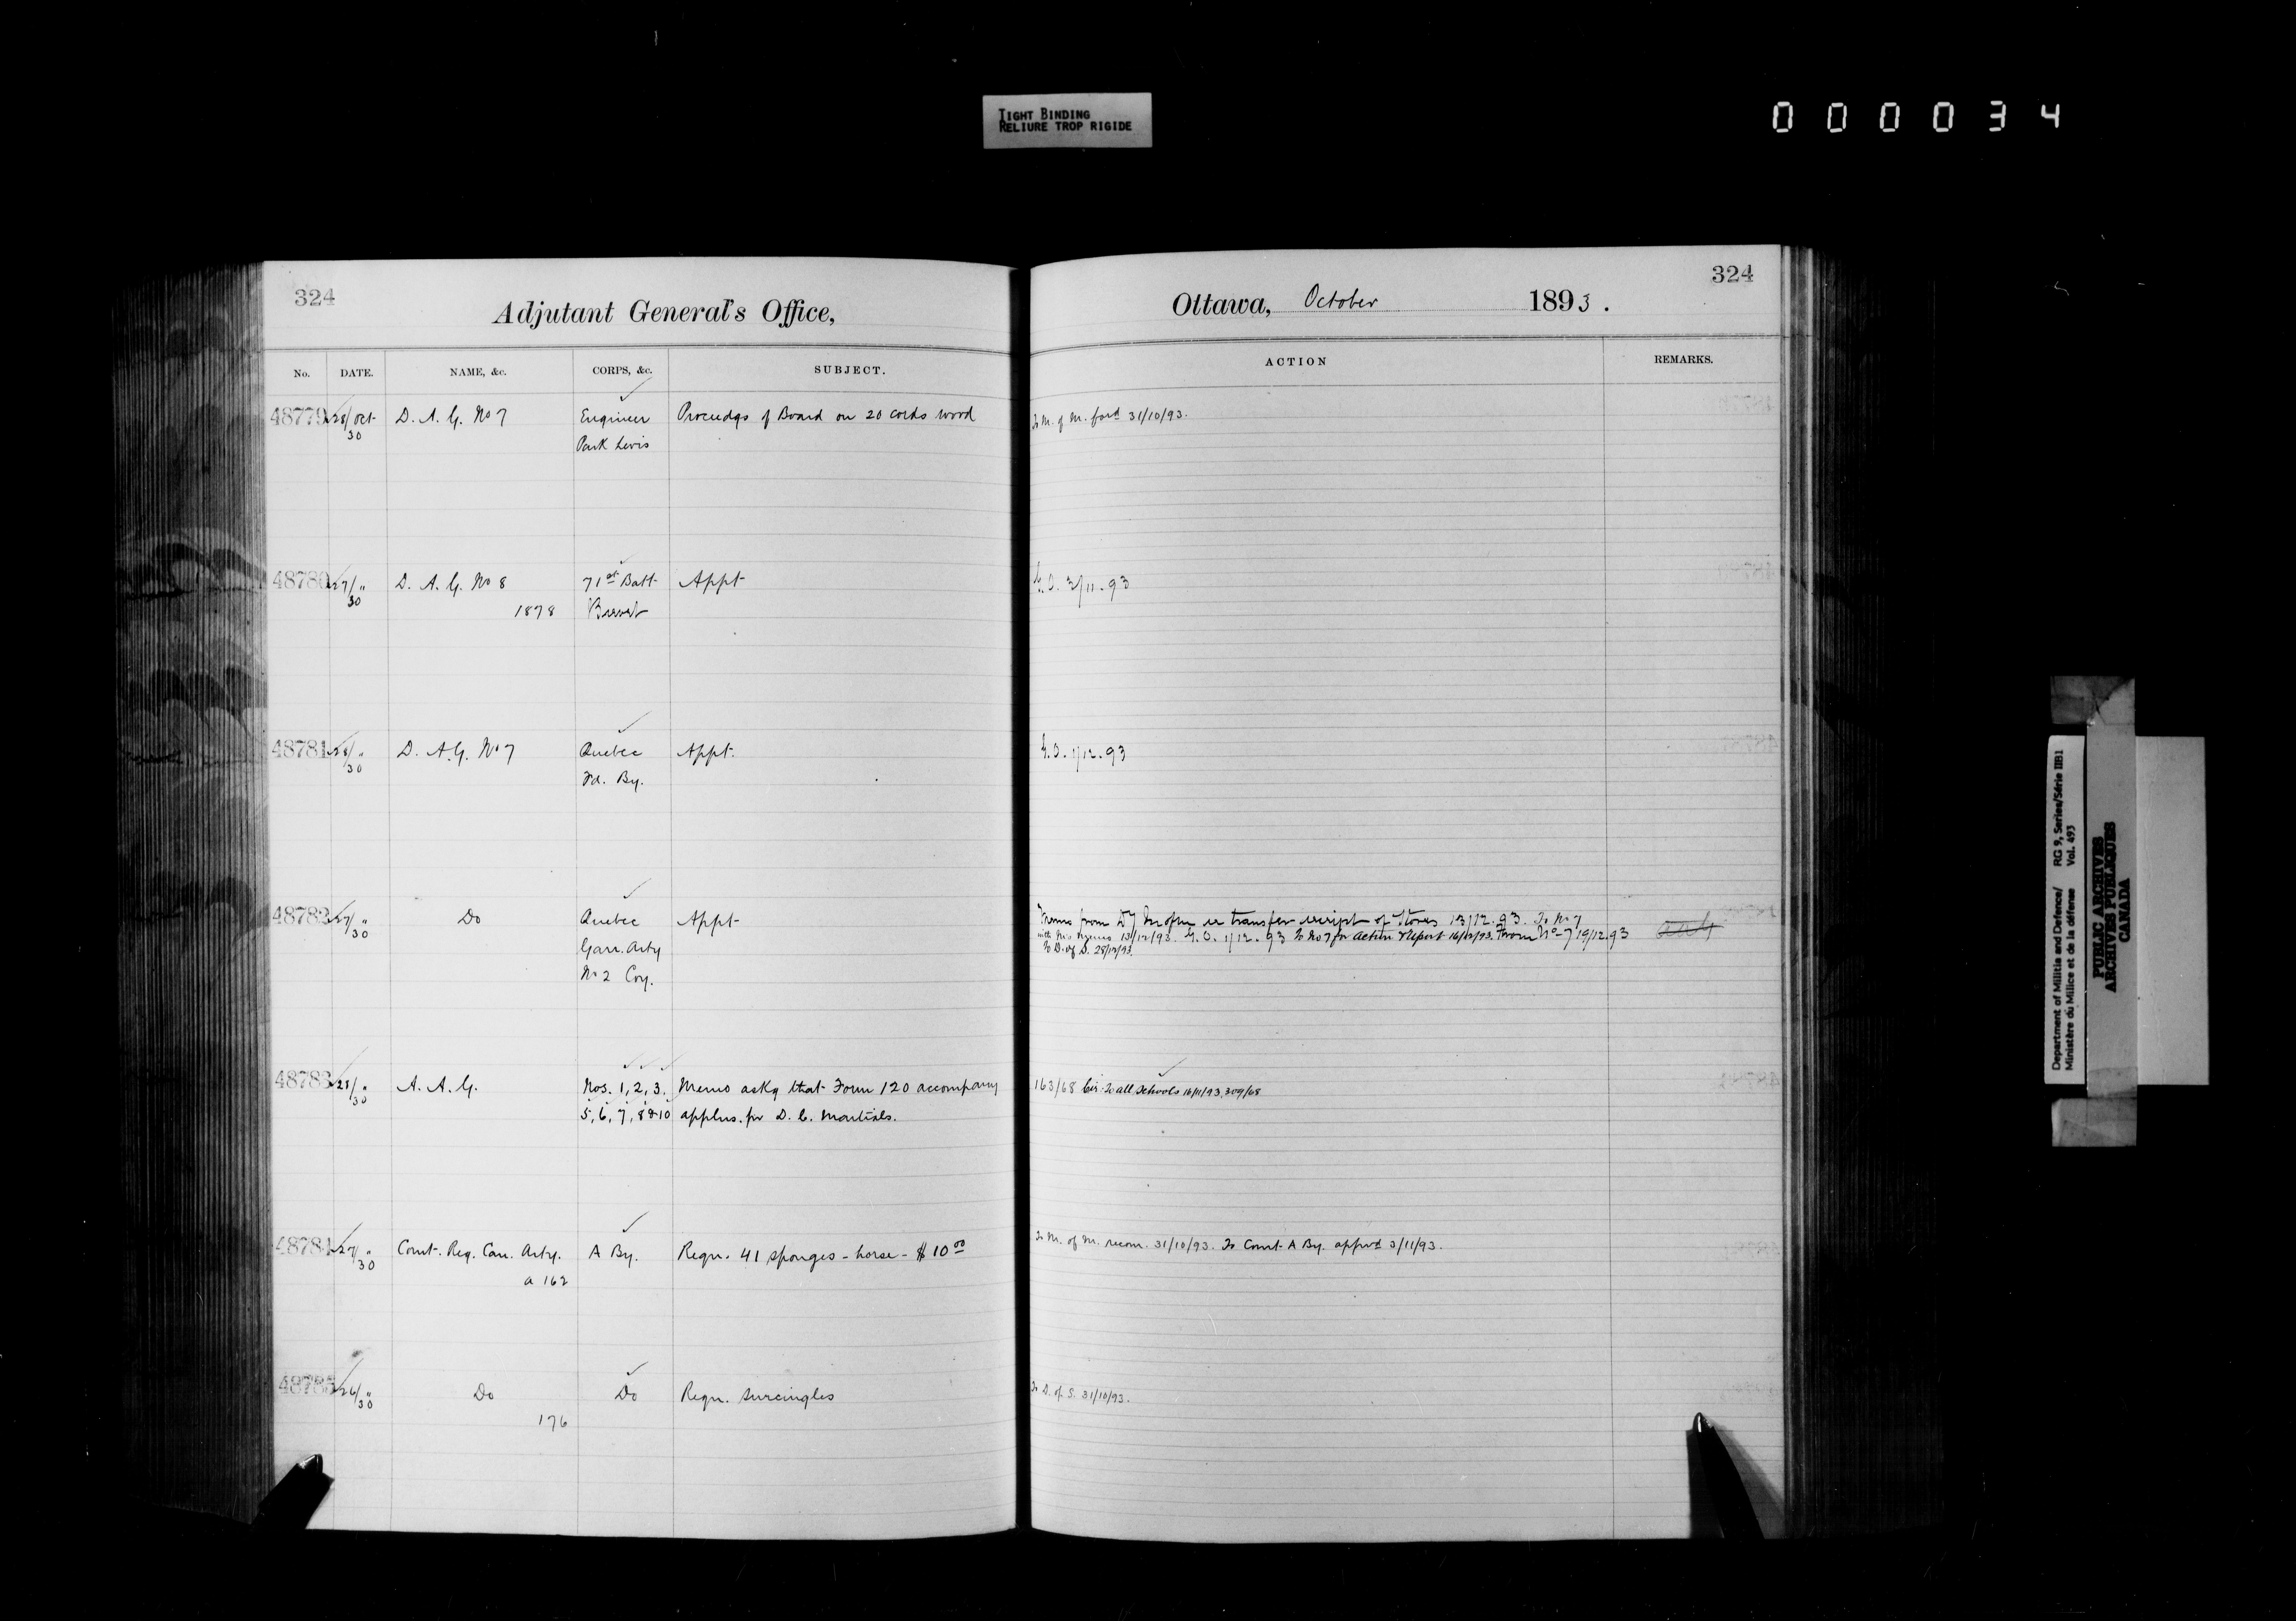 TIGHT BINDING
RELIURE TROP RIGIDE
000034
324
Adjutant General's Office,
No. DATE. NAME, &c. CORPS, &c. SUBJECT.
48779 28/Oct 30 D. A. G. No 7 Engineer Proceedgs of Board on 20 cords wood
Park Levis
48780 27/" 30 D. A. G. No 8 71st Batt Appt
1878 Brevet
48781 28/" 30 D. A. G. No 7 Quebec Appt.
Fd. By.
48782 27/" 30 Do Quebec Appt
Garr. Arty
No 2 Coy.
48783 28/" 30 A. A. G. Nos. 1, 2, 3. Memo askg that Form 120 accompany
5, 6, 7, 8 & 10 applns. for D. C. Martials.
48784 27/" 30 Comt. Reg. Can. Arty. A By. Reqn. 41 sponges - horse - $10.00
a 162
48785 26/" 30 Do Do Reqn. surcingles
176
324
Ottawa, October 1893.
ACTION REMARKS.
To M. of M. ford 31/10/93.
G. O. 3/11.93
G. O. 1/12.93
Memo from transfer receipt of Stores 13/12.93. To No 7
with memo 13/12/93. G. O. 1/12.93 To No 7 for Action & Report 16/12/93. From No 7 19/12.93
To D. of S. 28/12/93.
163/68 Cir. To all Schools 16/11/93, 309/68
To M. of M. recom. 31/10/93. To Comt A By. apprvd 3/11/93.
To D. of S. 31/10/93.
Department of Militia and Defence/ RG 9, Series/Série IIB1
Ministère du Milice et de la défense Vol. 493
PUBLIC ARCHIVES
ARCHIVES PUBLIQUES
CANADA